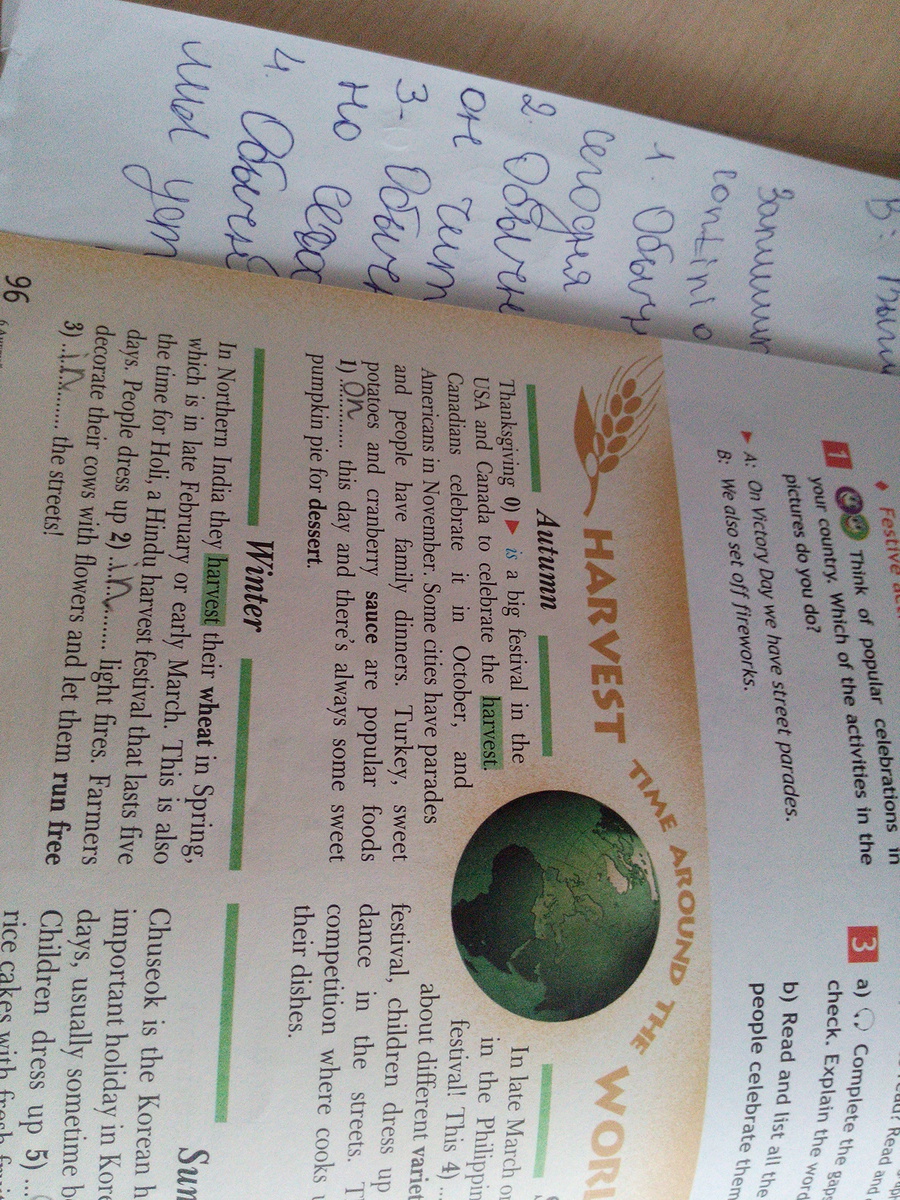 В:
Запишит
continio
1. Обыч
сегодня
2. Обычн
он чит
3- Обычн
но сего
4. Обычн
мы ует
Festive
1 Think of popular celebrations in
your country. Which of the activities in the
pictures do you do?
A: On Victory Day we have street parades.
B: We also set off fireworks.
3 a) Complete the gap
check. Explain the word
b) Read and list all the
people celebrate them
HARVEST TIME AROUND THE WORL
Autumn
Thanksgiving 0) ► is a big festival in the
USA and Canada to celebrate the harvest.
Canadians celebrate it in October, and
Americans in November. Some cities have parades
and people have family dinners. Turkey, sweet
potatoes and cranberry sauce are popular foods
1) ..on.......... this day and there's always some sweet
pumpkin pie for dessert.
Winter
In Northern India they harvest their wheat in Spring,
which is in late February or early March. This is also
the time for Holi, a Hindu harvest festival that lasts five
days. People dress up 2) ..in....... light fires. Farmers
decorate their cows with flowers and let them run free
3) ..in......... the streets!
In late March o
in the Philippin
festival! This 4) ...
about different variet
festival, children dress up
dance in the streets. T
competition where cooks
their dishes.
Sum
Chuseok is the Korean h
important holiday in Kore
days, usually sometime b
Children dress up 5) ...
rice cakes with fresh fruit
96